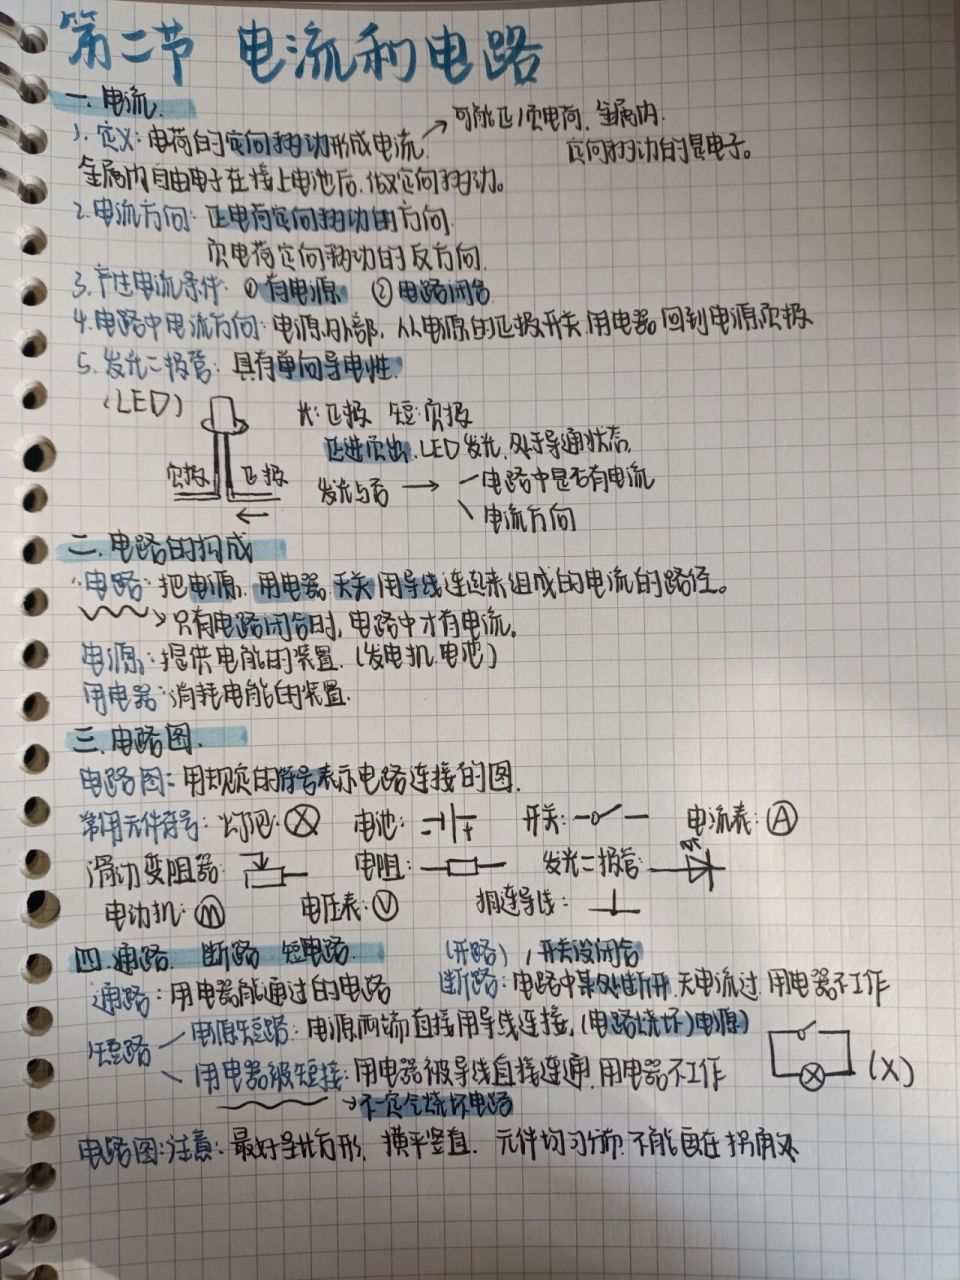 第二节 电流和电路
一.电流.
1.定义:电荷的定向移动形成电流 可能正/负电荷.金属内.
定向移动的是电子。
金属内自由电子在接上电池后,做定向移动。
2.电流方向:正电荷定向移动的方向.
负电荷定向移动的反方向.
3.产生电流条件:①有电源 ②电路闭合
4.电路中电流方向:电源外部,从电源的正极开关.用电器回到电源负极
5.发光二极管:具有单向导电性.
(LED) 长:正极 短:负极
正进负出,LED发光,处于导通状态,
负极 正极 发光与否 → 电路中是否有电流
电流方向
二.电路的构成
电路:把电源.用电器.开关用导线连起来组成的电流的路径。
只有电路闭合时,电路中才有电流。
电源:提供电能的装置.(发电机.电池)
用电器:消耗电能的装置.
三.电路图.
电路图:用规定的符号表示电路连接的图.
常用元件符号:灯泡: 电池: 开关: 电流表:A
滑动变阻器: 电阻: 发光二极管:
电动机:M 电压表:V 相连导线:
四.通路.断路.短电路. (开路) 开关没闭合
通路:用电器能通过的电路 断路:电路中某处断开.无电流过.用电器不工作
短路 电源短路:电源两端直接用导线连接,(电路烧坏)电源)
用电器被短接:用电器被导线直接连通.用电器不工作 (X)
不一定会烧坏电路
电路图:注意:最好呈长方形,横平竖直.元件均匀分布.不能画在拐角处